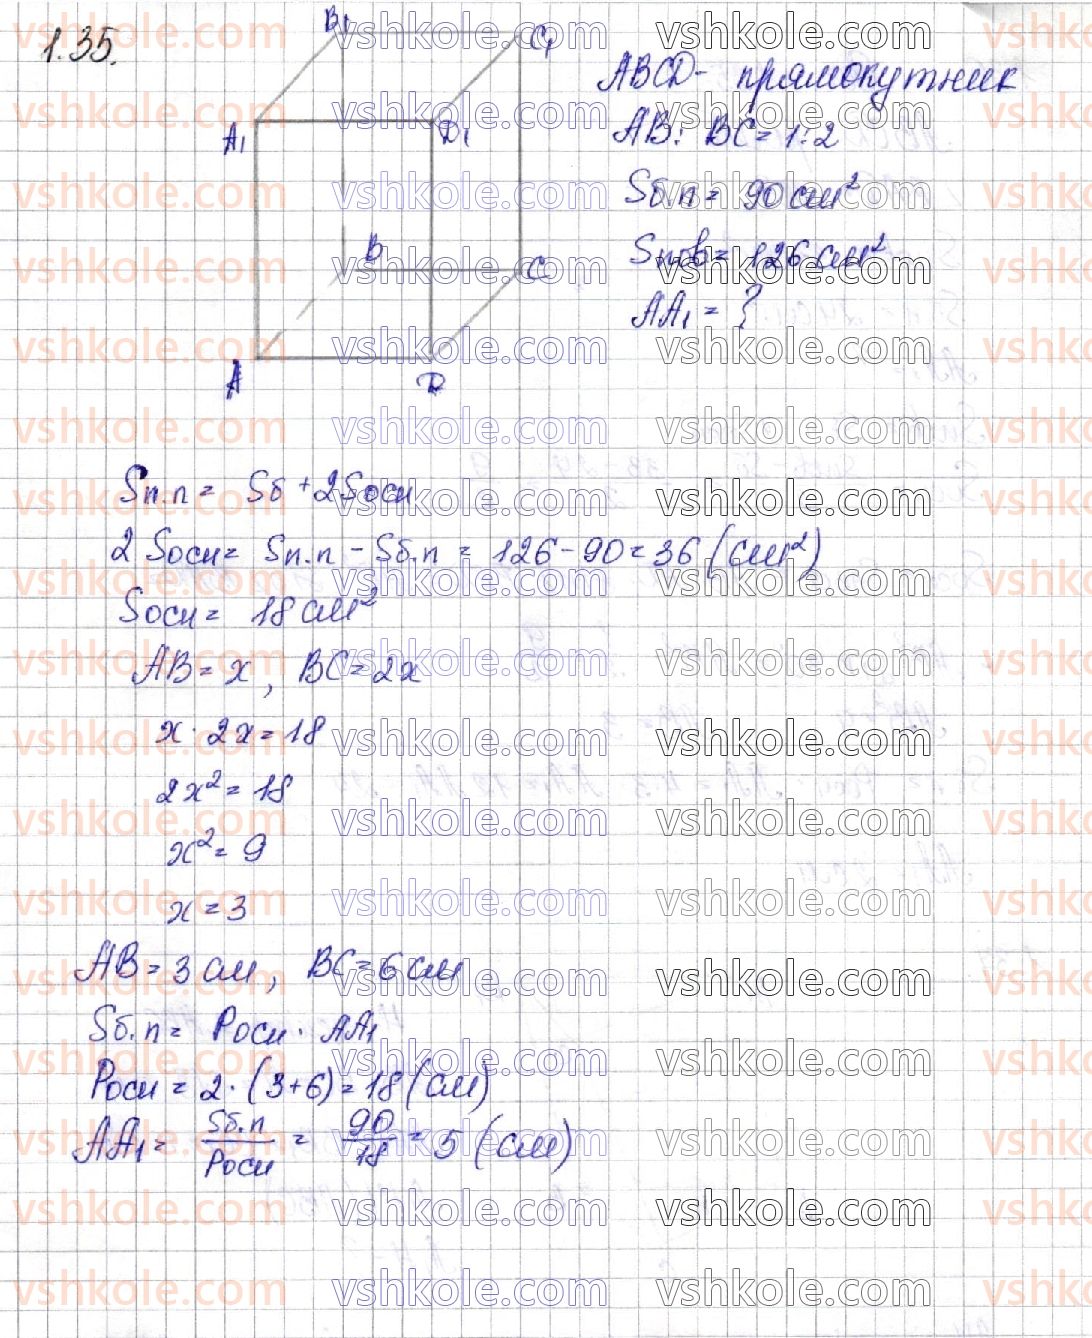 1.35.
B1
C1
A1
D1
B
C
A
D
ABCD - прямокутник
AB : BC = 1:2
Sб.п = 90 см²
Sпов = 126 см²
AA1 = ?
Sп.п = Sб + 2Sосн
2 Sосн = Sп.п - Sб.п = 126 - 90 = 36 (см²)
Sосн = 18 см²
AB = x, BC = 2x
x · 2x = 18
2x² = 18
x² = 9
x = 3
AB = 3 см, BC = 6 см
Sб.п = Pосн · AA1
Pосн = 2 · (3+6) = 18 (см)
AA1 = Sб.п / Pосн = 90 / 18 = 5 (см)
vshkole.com